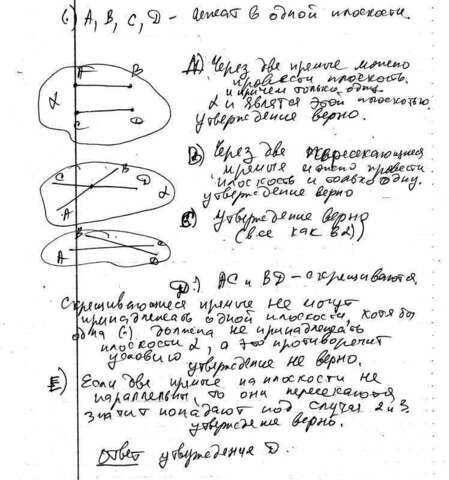 (.) A, B, C, D - лежат в одной плоскости.
A B
α
C D
А) Через две прямые можно
провести плоскость,
и причем только одну.
α и являтся этой плоскотью
утверждение верно.
C B
D
α
A
В) Через две пересекающиеся
прямые можно провести
плоскость и только одну.
утверждение верно
B C
A D
утверждение верно
(все как в 2))
D.) AC и BD - скрещиваются.
Скрещивающиеся прямые не могут
принадлежать одной плоскости, хотя бы
одна (.) должна не принадлежать
плоскости α, а это противоречит
условию
утверждение не верно.
E) Если две прямые на плоскости не
параллельны, то они пересекаются
значит попадают под случаи 2 и 3.
утверждение верно.
Ответ утверждение D.